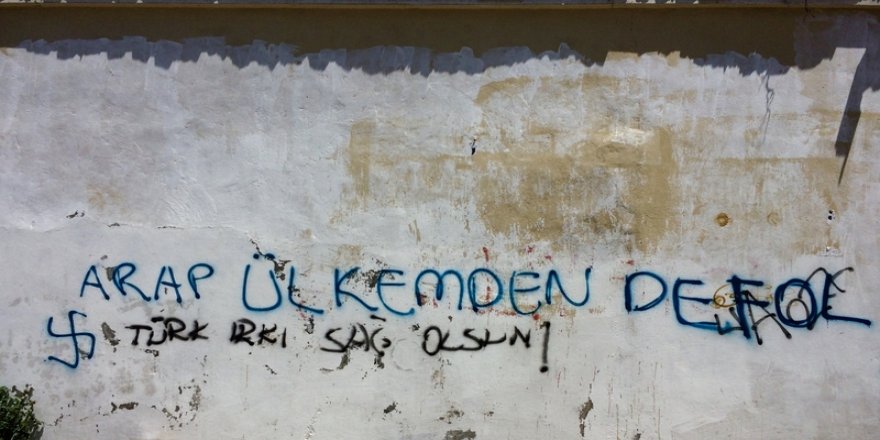 ARAP ÜLKEMDEN DEFOL
TÜRK IRKI SAĞ OLSUN!